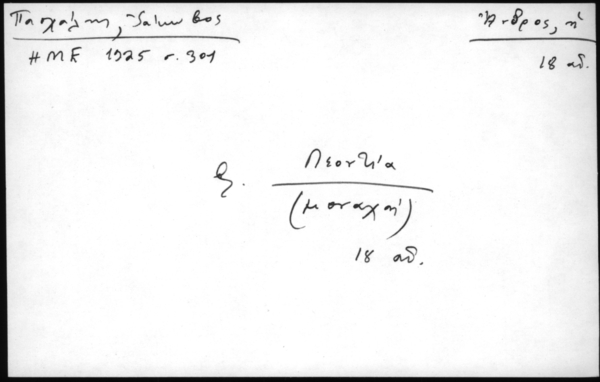 Πασχάλης, Ἰάκωβος
ΗΜΕ 1925 σ. 301
Ἄνδρος, ἡ
18 αἰ.
Λεοντία
(μοναχή)
18 αἰ.